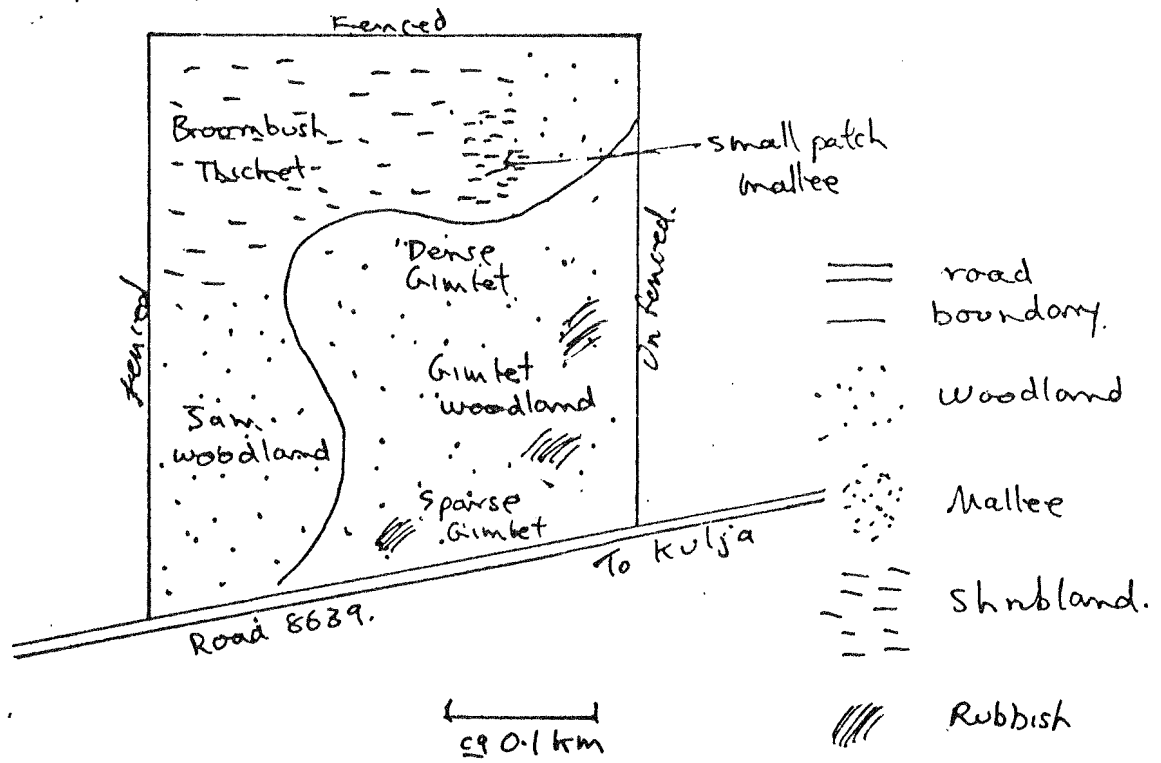 Fenced
Broombush
Thicket
small patch
mallee
"Dense
Gimlet
Unfenced.
Fenced
Gimlet
woodland
Sam.
woodland
Sparse
Gimlet
To Kulja
Road 8639.
ca 0.1 km
road
boundary.
Woodland
Mallee
Shrubland.
Rubbish